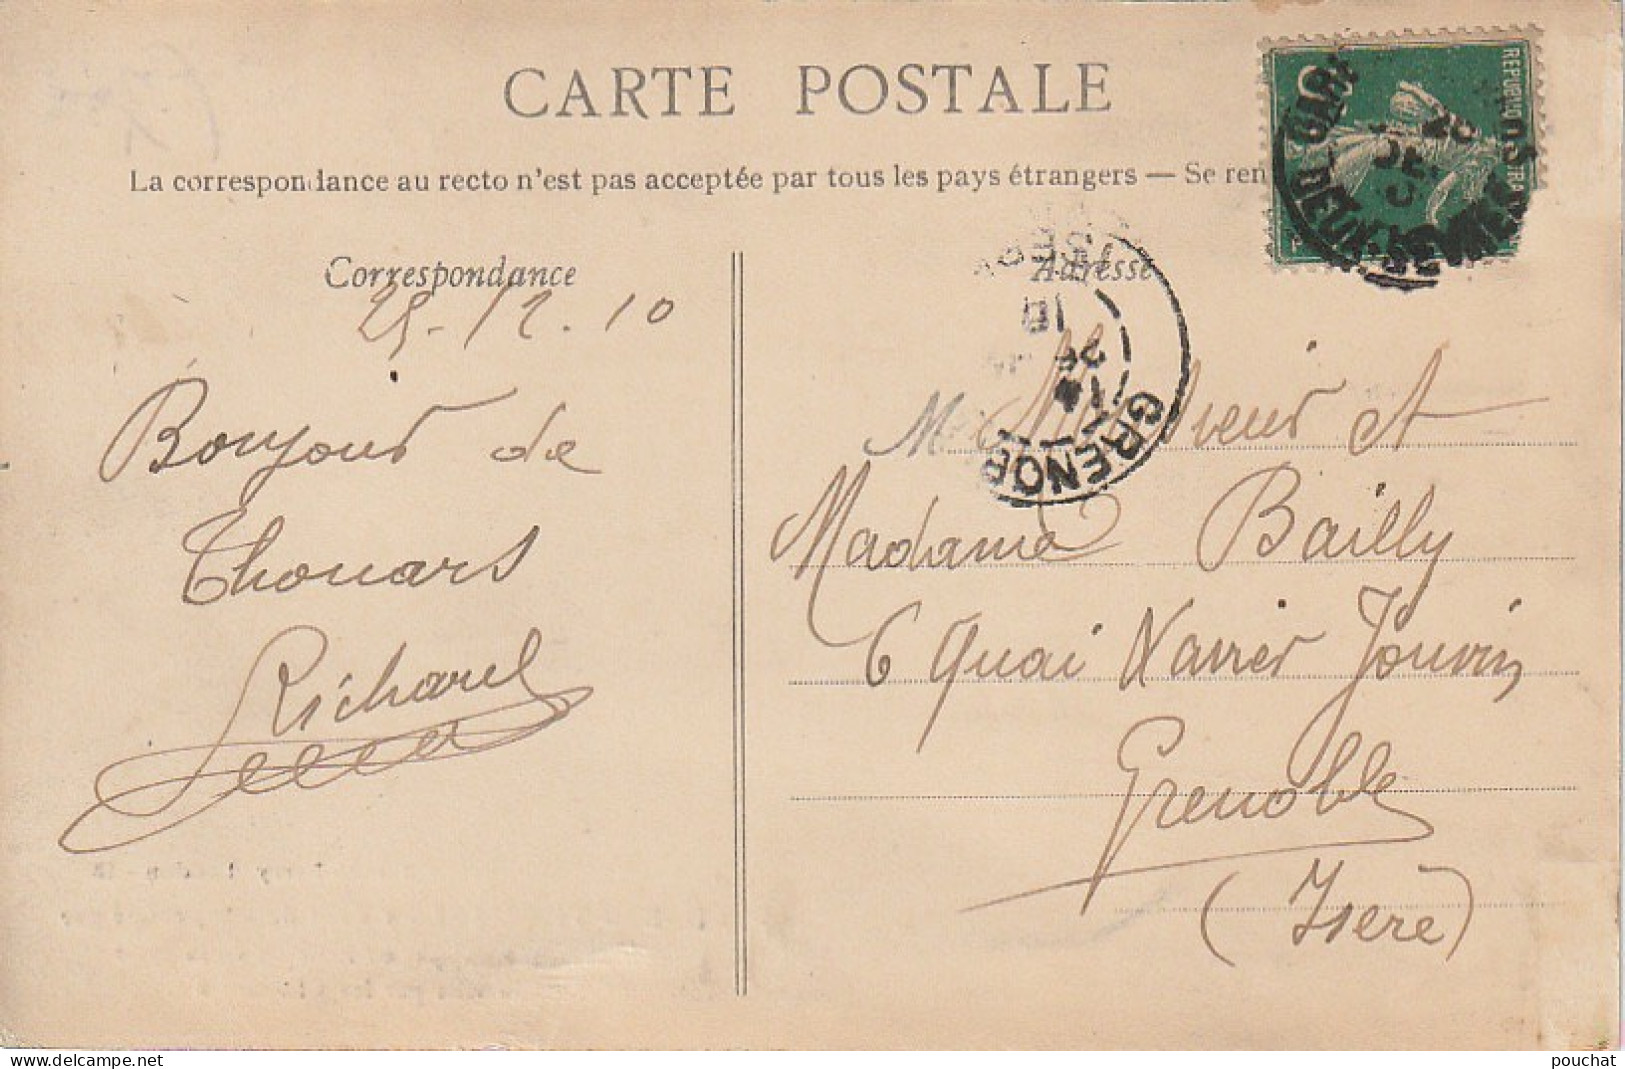 CARTE POSTALE
La correspondance au recto n'est pas acceptée par tous les pays étrangers — Se ren
Correspondance
25-12.10
Bonjour de
Thouars
Richard
Adresse
M Monsieur et
Madame Bailly
6 Quai Xavier Jouvin
Grenoble
(Isère)
GRENOB
DEUX-SEVRES
GARE
10
5
pouchat